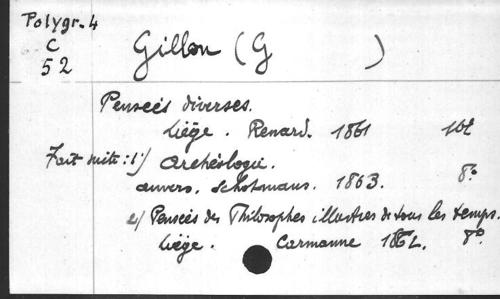 Polygr. 4
C
52
Gillon (G )
Pensées diverses.
Liège. Renard. 1861 12º
Fait suite: 1) Archéologie.
Anvers. Schotmans. 1863. 8º
2/ Pensées des Philosophes illustres de tous les temps.
Liège. Carmanne 1862. 8º